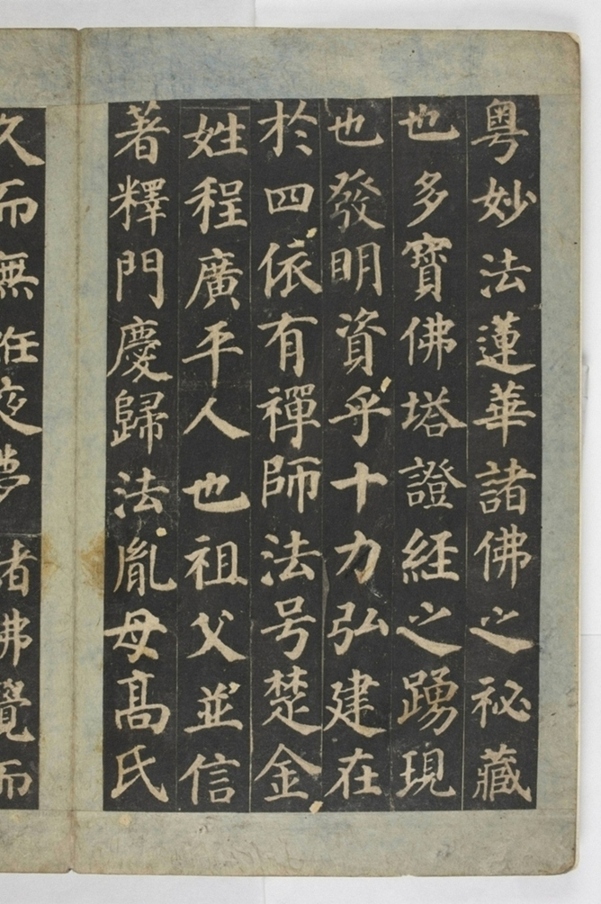 粤妙法蓮華諸佛之祕藏
也多寳佛塔證経之踴現
也發明資乎十力弘建在
於四依有禪師法号楚金
姓程廣平人也祖父並信
著釋門慶歸法胤母髙氏
久而無姙夜夢諸佛覺而